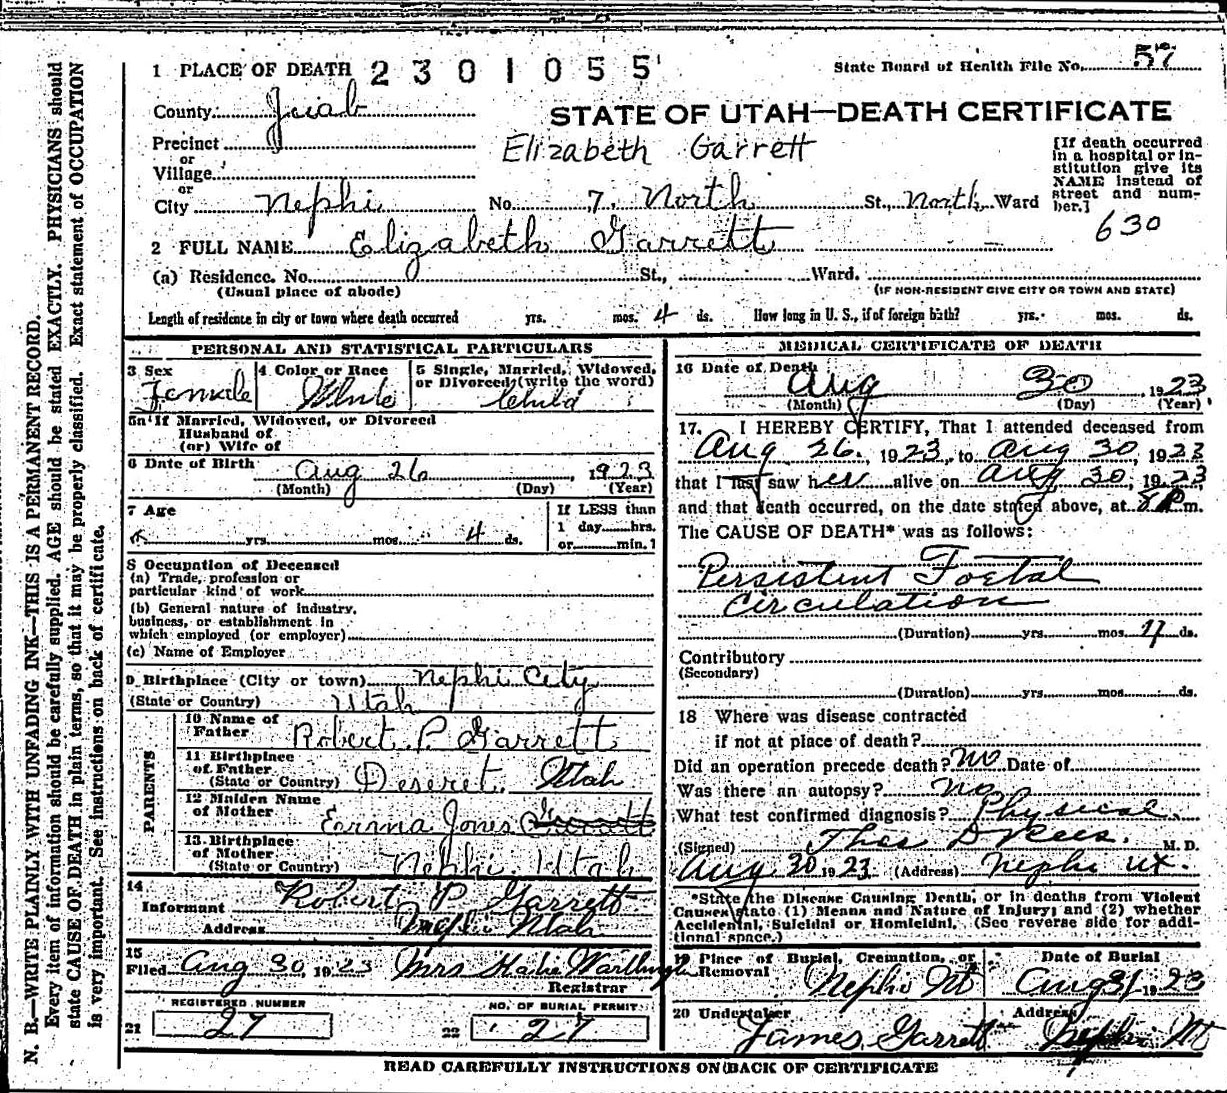 1 PLACE OF DEATH 2301055
State Board of Health File No. 57
County Juab
STATE OF UTAH—DEATH CERTIFICATE
Precinct
or
Village
or
City Nephi No. 7. North St., North Ward
Elizabeth Garrett
[If death occurred
in a hospital or in-
stitution give its
NAME instead of
street and num-
ber.]
630
2 FULL NAME Elizabeth Garrett
(a) Residence. No. St., Ward.
(Usual place of abode)
(IF NON-RESIDENT GIVE CITY OR TOWN AND STATE)
Length of residence in city or town where death occurred yrs. mos. 4 ds. How long in U. S., if of foreign birth? yrs. mos. ds.
PERSONAL AND STATISTICAL PARTICULARS
3 Sex
Female
4 Color or Race
White
5 Single, Married, Widowed,
or Divorced (write the word)
Child
5a If Married, Widowed, or Divorced
Husband of
(or) Wife of
6 Date of Birth Aug 26 1923
(Month) (Day) (Year)
7 Age
yrs. mos. 4 ds.
If LESS than
1 day hrs.
or min.
8 Occupation of Deceased
(a) Trade, profession or
particular kind of work
(b) General nature of industry,
business, or establishment in
which employed (or employer)
(c) Name of Employer
9 Birthplace (City or town) Nephi City
(State or Country) Utah
PARENTS
10 Name of
Father Robert P. Garrett
11 Birthplace
of Father
(State or Country) Deseret Utah
12 Maiden Name
of Mother Emma Jones
13 Birthplace
of Mother
(State or Country) Nephi Utah
14
Informant Robert P Garrett
Address Nephi Utah
15
Filed Aug 30 1923 Mrs Katie Warthington
Registrar
REGISTERED NUMBER
21 27
NO. OF BURIAL PERMIT
22 27
MEDICAL CERTIFICATE OF DEATH
16 Date of Death
Aug 30 1923
(Month) (Day) (Year)
17. I HEREBY CERTIFY, That I attended deceased from
Aug 26, 1923, to Aug 30, 1923
that I last saw her alive on Aug 30, 1923,
and that death occurred, on the date stated above, at 8 P m.
The CAUSE OF DEATH* was as follows:
Persistent Foetal
Circulation
(Duration) yrs. mos. ds.
Contributory
(Secondary)
(Duration) yrs. mos. ds.
18 Where was disease contracted
if not at place of death?
Did an operation precede death? No Date of
Was there an autopsy? No
What test confirmed diagnosis? Physical
(Signed) Thos D Rees. M. D.
Aug 30 1923 (Address) Nephi Ut.
*State the Disease Causing Death, or in deaths from Violent
Causes state (1) Means and Nature of Injury; and (2) whether
Accidental, Suicidal or Homicidal. (See reverse side for addi-
tional space.)
19 Place of Burial, Cremation, or
Removal
Nephi Ut
Date of Burial
Aug 31 1923
20 Undertaker
James Garrett
Address
Nephi Ut
READ CAREFULLY INSTRUCTIONS ON BACK OF CERTIFICATE
N. B.—WRITE PLAINLY WITH UNFADING INK—THIS IS A PERMANENT RECORD.
Every item of information should be carefully supplied. AGE should be stated EXACTLY. PHYSICIANS should
state CAUSE OF DEATH in plain terms, so that it may be properly classified. Exact statement of OCCUPATION
is very important. See instructions on back of certificate.